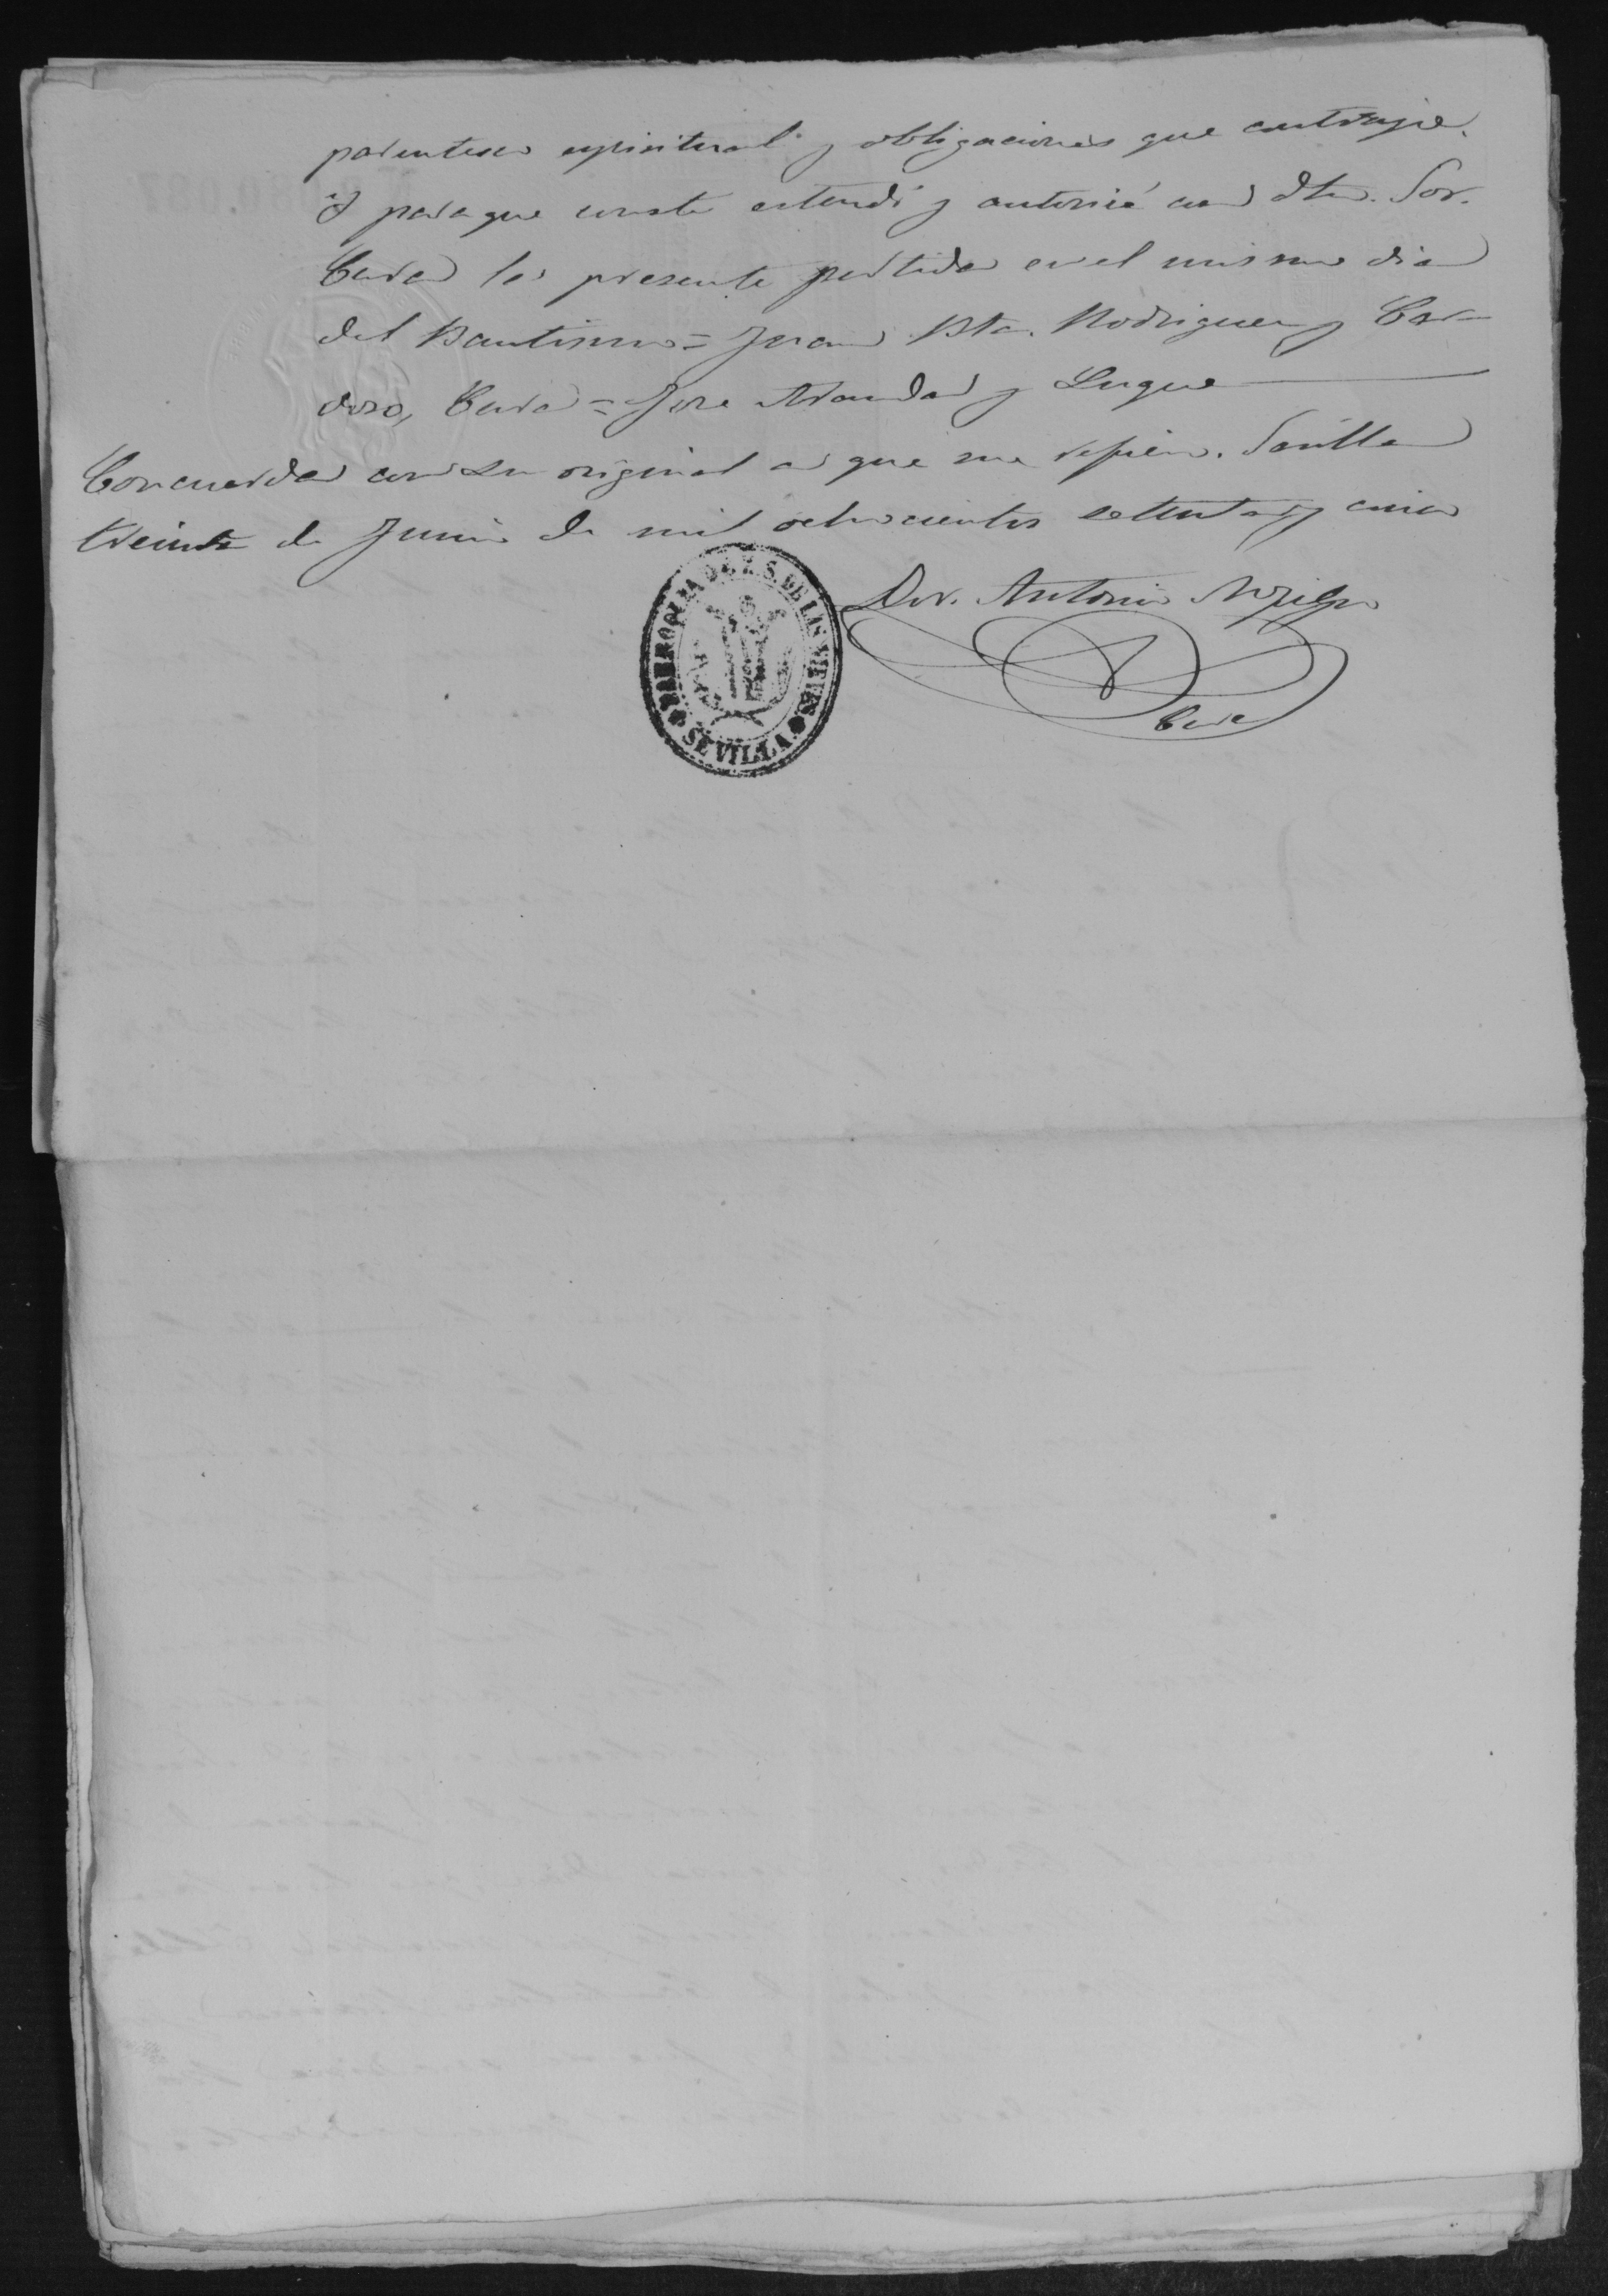 parentesco espiritual y obligaciones que contraje.
Y para que conste estendí y autoricé con dho. Sor.
Cura la presente partida en el mismo dia
del Bautismo = Juan Bta. Rodriguez y Car-
doso, Cura = Jose Aranda y Luque
Concuerda con su original a que me refiero. Sevilla
treinta de Junio de mil ochocientos setenta y cinco
Dor. Antonio
Cura
PARROQUIA DE N. S. DE LAS NIEVES
SEVILLA.